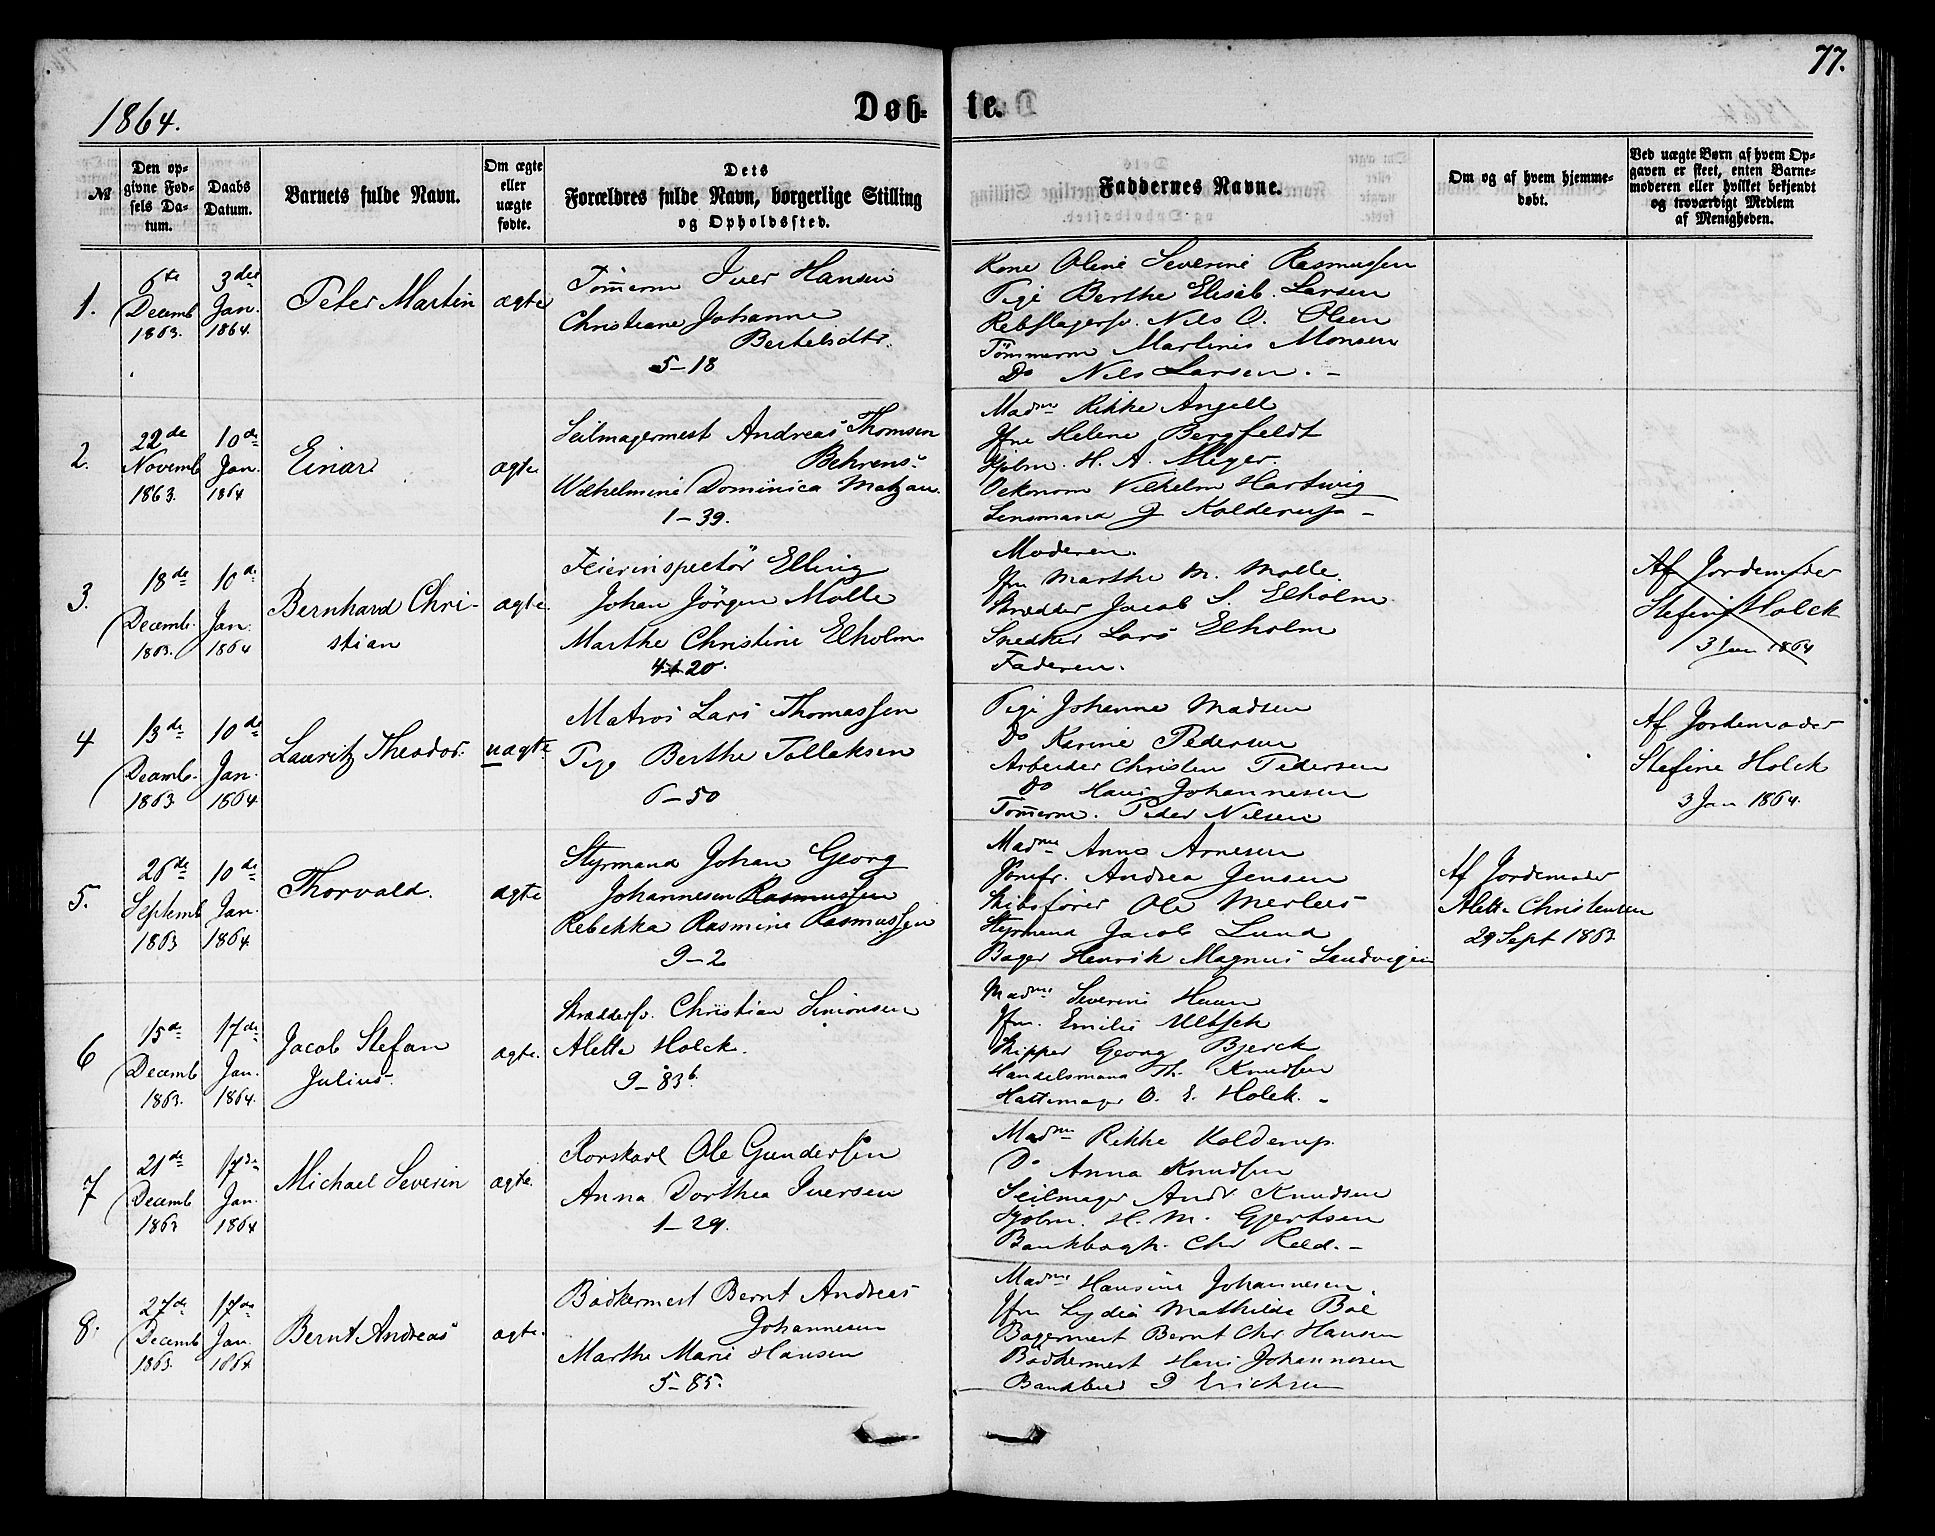 77.
1864.
Døb-
te.
№
Den op-
givne Fød-
sels Da-
tum.
Daabs
Datum.
Barnets fulde Navn.
Om ægte
eller
uægte
fødte.
Dets
Forældres fulde Navn, borgerlige Stilling
og Opholdssted.
Faddernes Navne.
Om og af hvem hjemme-
døbt.
Ved uægte Børn af hvem Op-
gaven er skeet, enten Barne-
moderen eller hvilket bekjendt
og troværdigt Medlem
af Menigheden.
1.
6te
Decemb
1863.
3die
Jan.
1864.
Peter Martin
ægte
Tømerm Iver Hansen
Christiane Johanne
Bertelsdtr.
5-18
Kone Oline Severine Rasmussen
Pige Berthe Elisab. Larsen
Rebslagersv. Nils O. Olsen
Tömmerm Martinis Monsen
Do Nils Larsen. -
2.
22de
Novemb
1863.
10de
Jan.
1864
Einar
ægte
Seilmagermest Andreas Thomsen
Behrens
Wilhelmine Dominica Matzau.
1-39.
Madme Rikke Angell
Jfne Helene Bergfeldt
Hjelm. H. A. Meyer
Oekonom Vilhelm Hartwig
Lensmand J Kolderup -
3.
18de
Decemb.
1863.
10de
Jan.
1864
Bernhard Chri-
stian
ægte.
Feierinspectör Elling
Johan Jörgen Molle
Marthe Christine Elholm
4-20.
Moderen.
Jfr Marthe M. Molle.
Skrædder Jacob S. Elholm
Snedker Lars Elholm
Faderen.
Af Jordemoder
Stefine Holck
3 Jan 1864
4
13de
Decemb.
1863
10de
Jan.
1864
Lauritz Theodor.
uægte.
Matros Lars Thomassen
Pige Berthe Tolleksen
6-50
Pige Johanne Madsen
Do Karine Pedersen
Arbeider Christen Pedersen
Do Hans Johannesen
Tömerm. Peder Nilsen
Af Jordemoder
Stefine Holck
3 Jan 1864.
5.
26de
Septemb
1863
10de
Jan.
1864.
Thorvald.
ægte
Styrmand Johan Georg
Johannesen Rasmussen
Rebekka Rasmine Rasmussen
9-2
Madme Anne Arnesen
Jomfr. Andrea Jensen
Skibsfører Ole Merlees
Styrmand Jacob Lund
Bager Henrik Magnus Landvigen
Af Jordemoder
Alette Christensen
29 Sept 1863
6
15de
Decemb
1863.
17de
Jan.
1864.
Jacob Stefan
Julius.
ægte.
Skræddersv. Christian Simonsen
Alette Holck.
9-83b.
Madme Severine Haan
Jfr. Emilie Ultsch
Skipper Georg Bjerck
Handelsmand Th. Knudsen
Hattemager O. E. Holck. -
7
21de
Decemb
1863
17de
Jan.
1864
Michael Severin
ægte.
Rorskarl Ole Gundersen
Anna Dorthea Iversen
1-29.
Madme Rikke Kolderup.
Do Anna Knudsen
Seilmager Andr Knudsen
Hjelm. H. M. Gjertsen
Bankbogh. Chr Reld. -
8.
27de
Decemb
1863.
17de
Jan.
1864
Bernt Andreas
ægte.
Bödkermest Bernt Andreas
Johannesen
Marthe Marie Hansen
5-85.
Madme Hansine Johannesen
Jfr Lydia Mathilde Böe
Bagermest Bernt Chr Hansen
Bödkermest Hans Johannesen
Bankbud P Ericksen